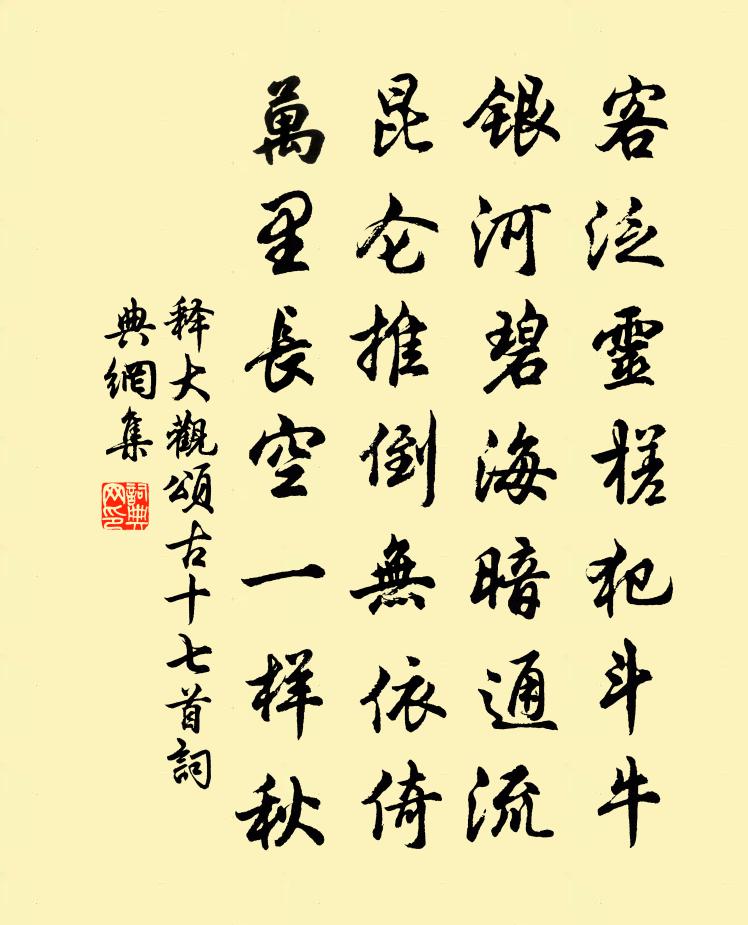 客泛靈槎犯斗牛
銀河碧海暗通流
昆仑推倒無依倚
萬里長空一样秋
释大觀頌古十七首詞
典網集
詞典
网印